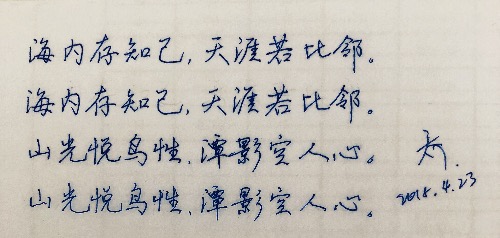 海内存知己,天涯若比邻。
海内存知己,天涯若比邻。
山光悦鸟性,潭影空人心。
山光悦鸟性,潭影空人心。
2018.4.23